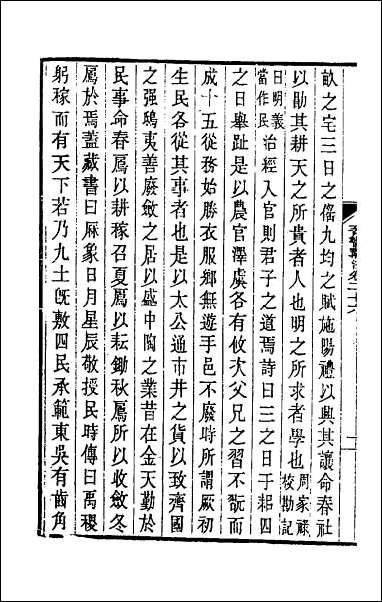 畝之宅三日之徭九均之賦施陽禮以興其讓命春社
以勖其耕天之所貴者人也明之所求者學也周家祿校勘記
曰明義當作民治經入官則君子之道焉詩曰三之日于耜四
之日舉趾是以農官澤虞各有攸次父兄之習不翫而
成十五從務始勝衣服鄉無遊手邑不廢時所謂厥初
生民各從其事者也是以太公通市井之貨以致齊國
之强鴟夷善廢斂之居以盛中陶之業昔在金天勤於
民事命春鳸以耕稼召夏鳸以耘鋤秋鳸所以收斂冬
鳸於焉蓋藏書曰厤象日月星辰敬授民時傳曰禹稷
躬稼而有天下若乃九土旣敷四民承範東吳有齒角